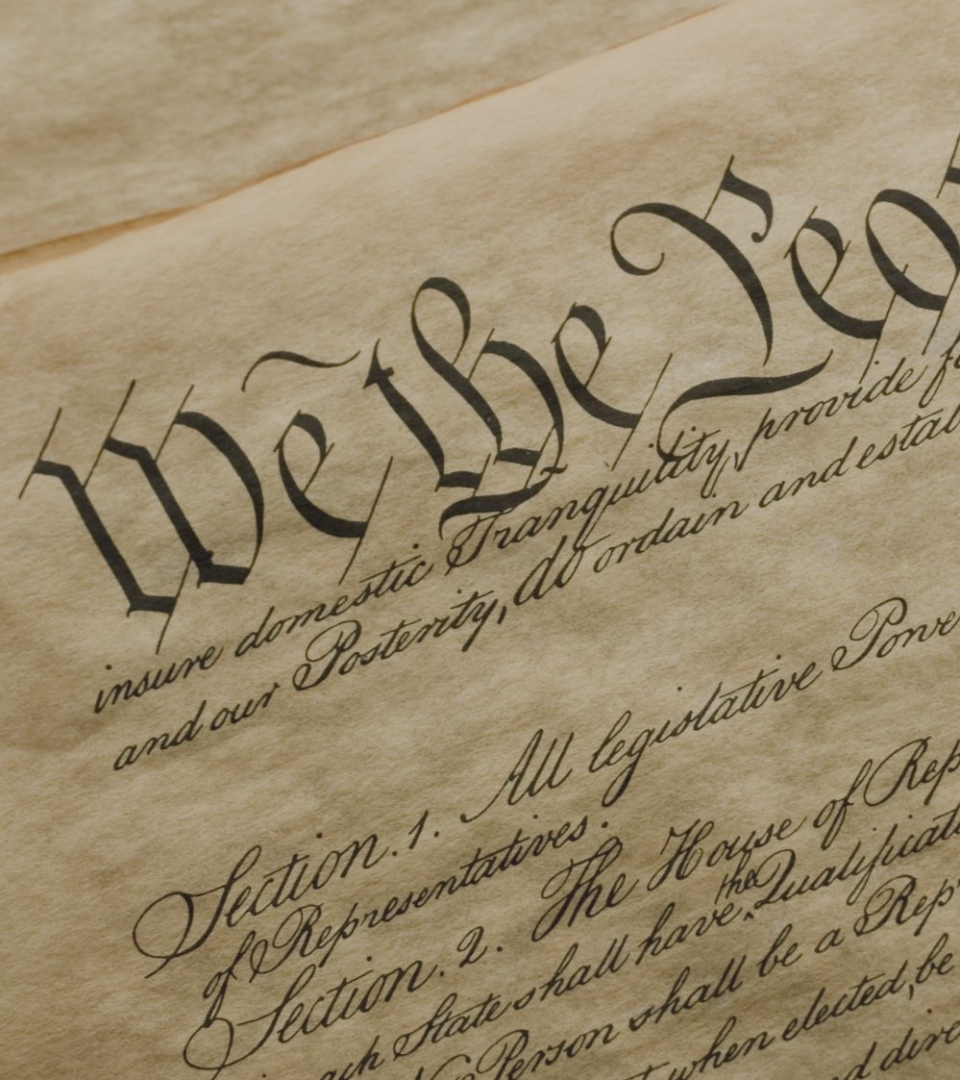 We the Peo
insure domestic Tranquility, provide fo
and our Posterity, do ordain and estab
Section. 1. All legislative Powe
of Representatives.
Section. 2. The House of Rep
each State shall have the Qualificati
No Person shall be a Rep
when elected, be